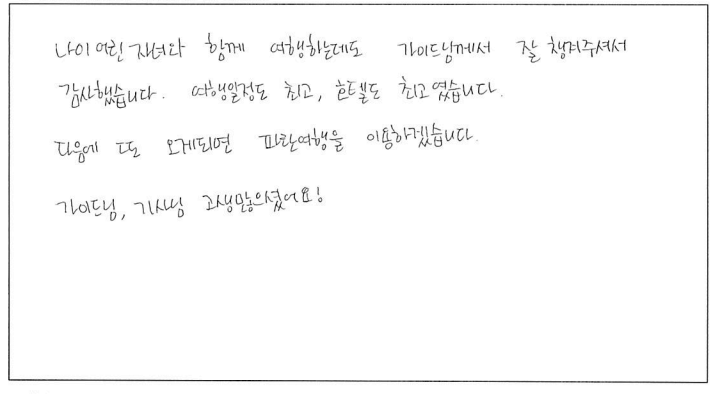 나이 어린 자녀와 함께 여행하는데도 가이드님께서 잘 챙겨주셔서
감사했습니다. 여행일정도 최고, 호텔도 최고였습니다.
다음에 또 오게되면 파란여행을 이용하겠습니다.
가이드님, 기사님 고생많으셨어요!